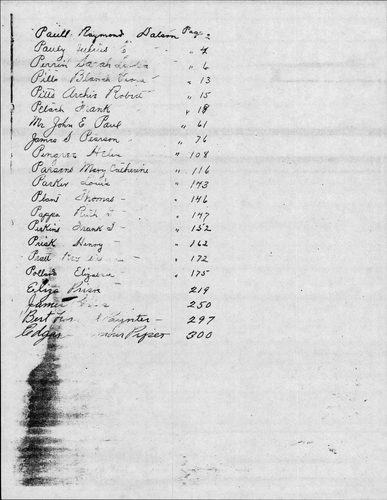 Paull Raymond Dalson Page 2
Pauly Julius E - " 4
Perrin Sarah Lydia " 6
Pitts Blanch " 13
Pitts Archie Robert " 15
Petsch Frank " 18
Mr John E Paul " 61
James S Pearson - " 76
Helen " 108
Parsons Mary Catherine " 116
Parker Louis " 143
Plant Thomas - " 146
Pappa Rich - " 147
Perkins Frank S - " 152
Prisk Henry - " 162
Pratt - " 172
Pollard Elizabeth " 175
Eliza Prisn 219
James 250
Bert 297
Edgar Piper 300